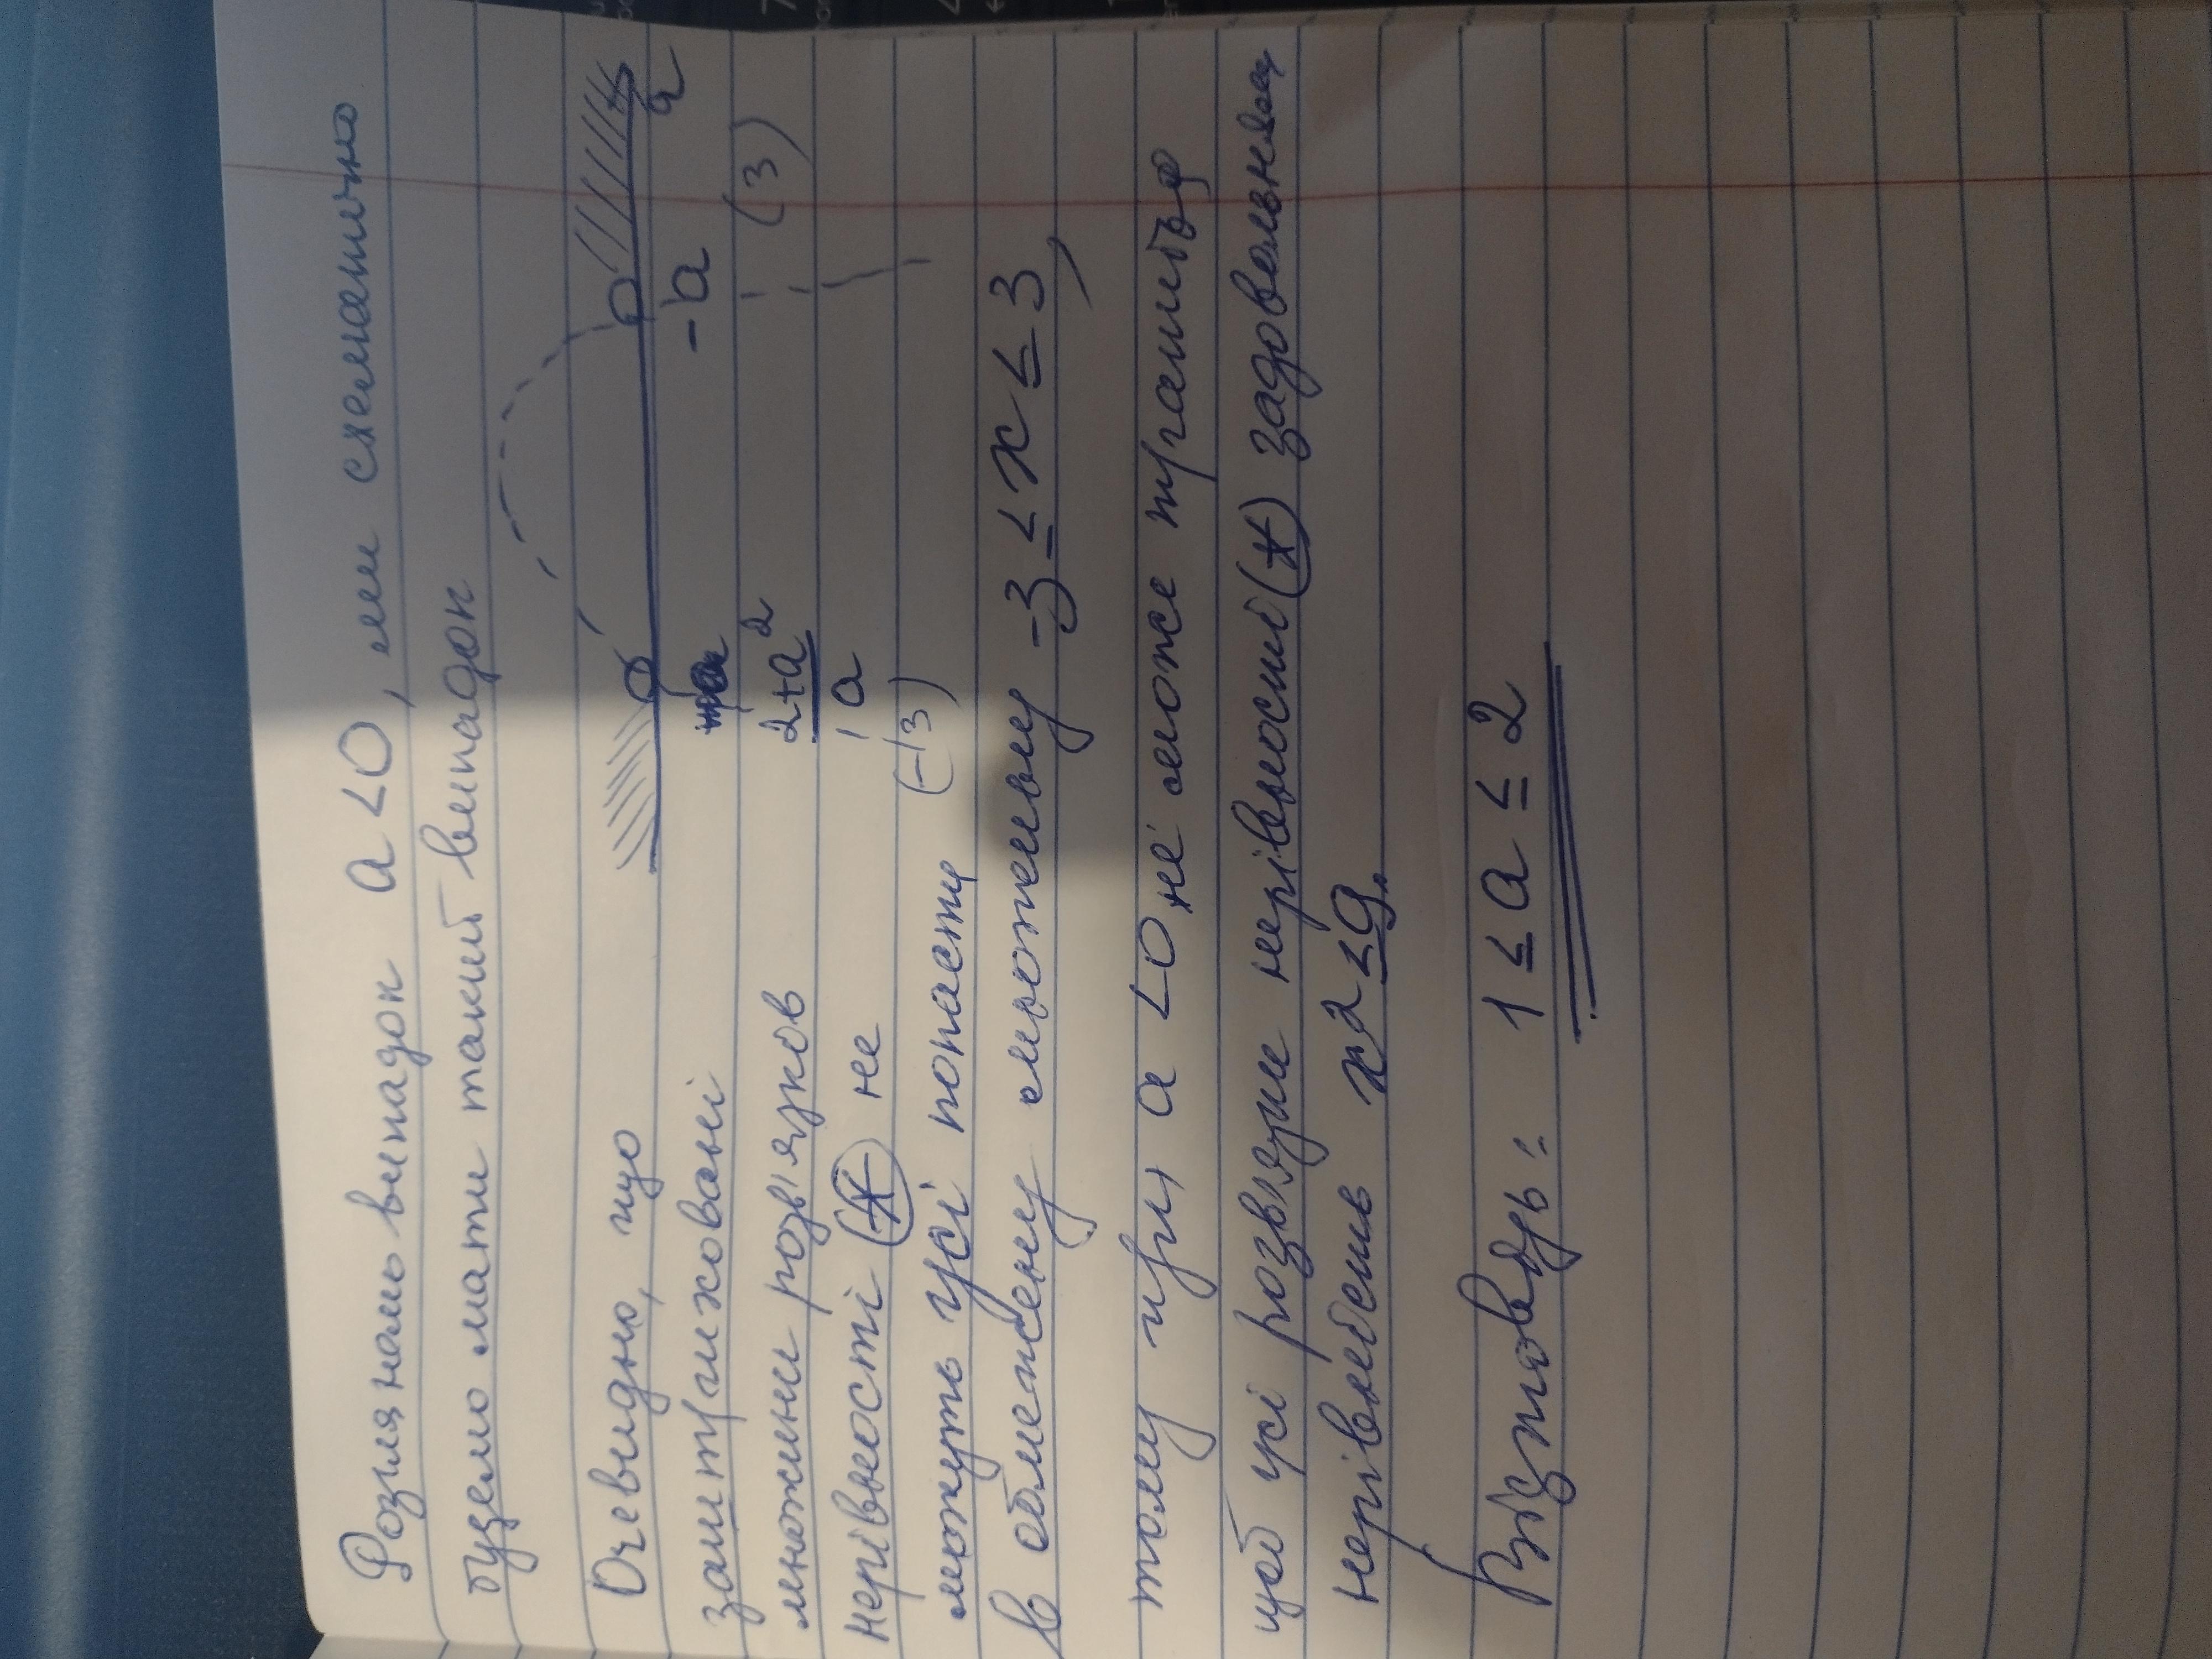 Розглянемо випадок a < 0, ми схематично
будемо мати такий випадок
Очевидно, що
-a
x
заштриховані
(3)
множини розв'язків
2+a²
нерівності (*) не
a
можуть усі попасти
(-3)
в обмежену множину -3 ≤ x ≤ 3,
тому при a < 0, не може трапиться
щоб усі розв'язки нерівності (*) задовольняли
нерівність x² ≤ 9.
Відповідь: 1 ≤ a ≤ 2